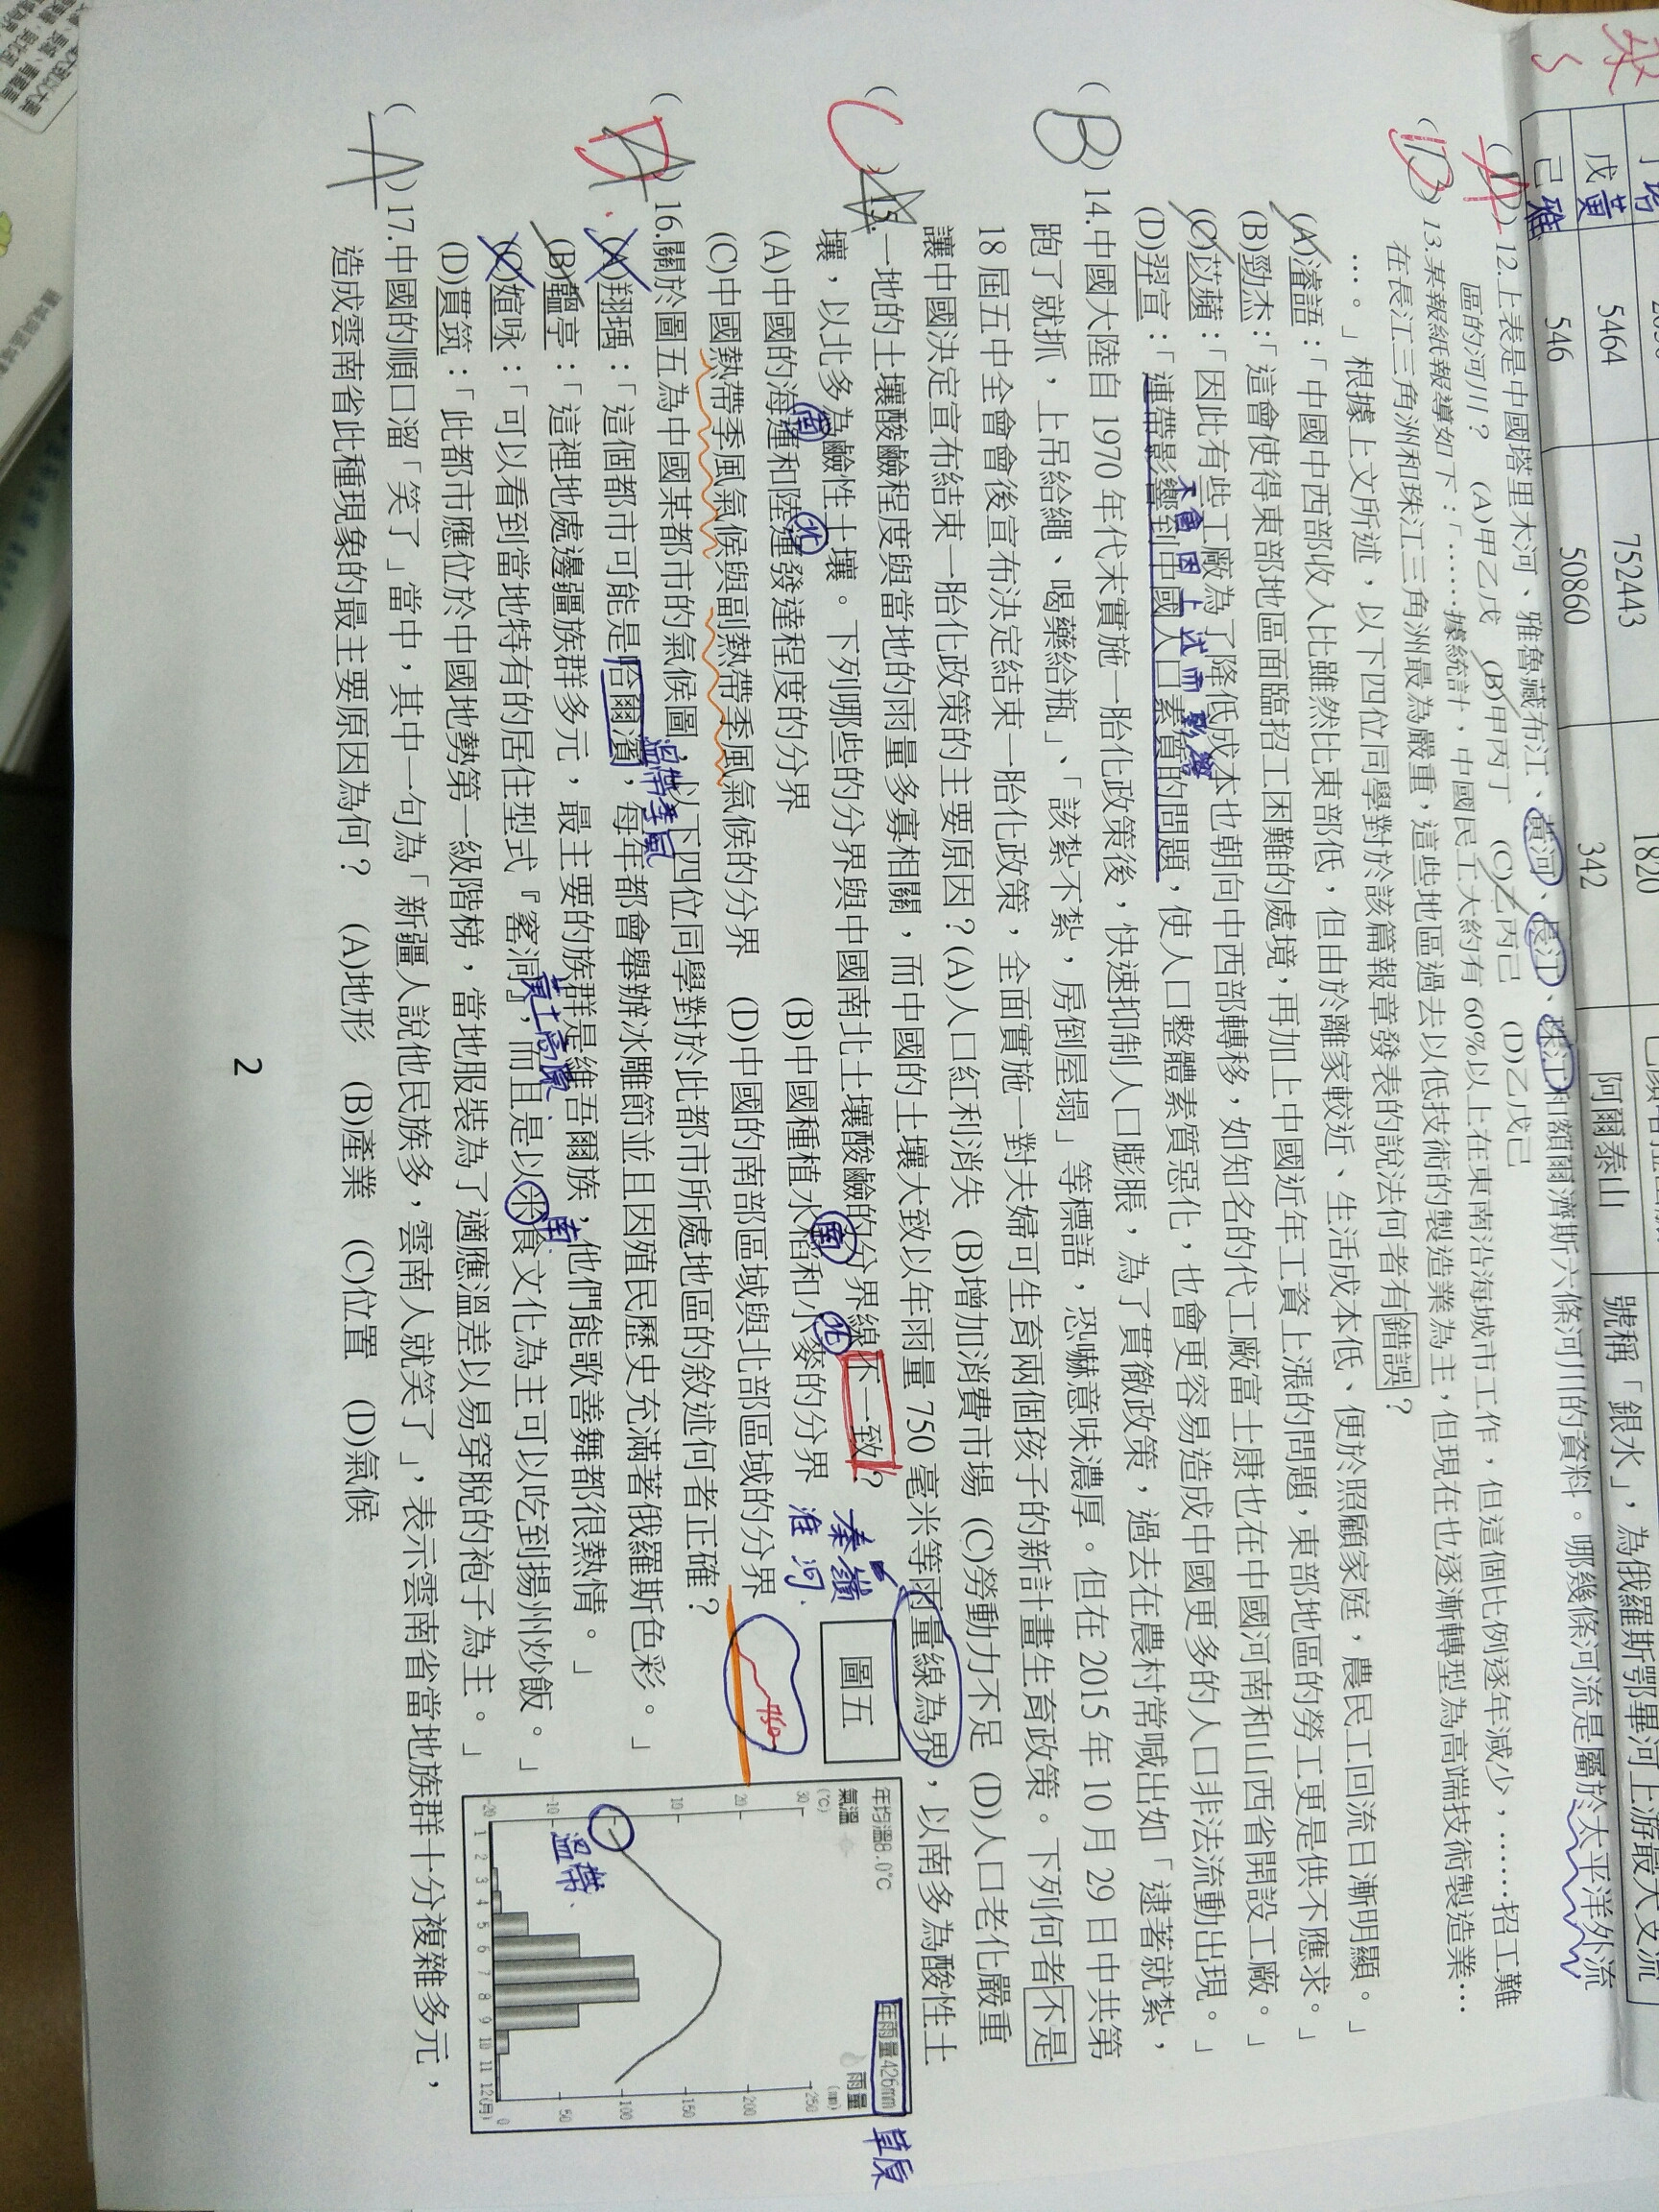 戊黃 5464 752443 342 阿爾泰山 號稱「銀水」,為俄羅斯鄂畢河上游最大支流
己雅 546 50860
12.上表是中國塔里木河、雅魯藏布江、黃河、長江、珠江和額爾濟斯六條河川的資料。哪幾條河流是屬於太平洋外流
區的河川? (A)甲乙戊 (B)甲丙丁 (C)乙丙己 (D)乙戊己
13.某報紙報導如下:「……據統計,中國民工大約有 60%以上在東南沿海城市工作,但這個比例逐年減少,……招工難
在長江三角洲和珠江三角洲最為嚴重,這些地區過去以低技術的製造業為主,但現在也逐漸轉型為高端技術製造業…
…。」根據上文所述,以下四位同學對於該篇報章發表的說法何者有錯誤?
(A)濬語:「中國中西部收入比雖然比東部低,但由於離家較近、生活成本低、便於照顧家庭,農民工回流日漸明顯。」
(B)勁杰:「這會使得東部地區面臨招工困難的處境,再加上中國近年工資上漲的問題,東部地區的勞工更是供不應求。」
(C)苡蘋:「因此有些工廠為了降低成本也朝向中西部轉移,如知名的代工廠富士康也在中國河南和山西省開設工廠。」
不會因
影響
(D)羿宣:「連帶影響到中國人口素質的問題,使人口整體素質惡化,也會更容易造成中國更多的人口非法流動出現。」
(B)14.中國大陸自 1970 年代末實施一胎化政策後,快速抑制人口膨脹,為了貫徹政策,過去在農村常喊出如「逮著就紮,
跑了就抓,上吊給繩、喝藥給瓶」、「該紮不紮,房倒屋塌」等標語,恐嚇意味濃厚。但在 2015 年 10 月 29 日中共第
18 屆五中全會會後宣布決定結束一胎化政策,全面實施一對夫婦可生育兩個孩子的新計畫生育政策。下列何者不是
讓中國決定宣布結束一胎化政策的主要原因?(A)人口紅利消失 (B)增加消費市場 (C)勞動力不足 (D)人口老化嚴重
(C)15.一地的土壤酸鹼程度與當地的雨量多寡相關,而中國的土壤大致以年雨量 750 毫米等雨量線為界,以南多為酸性土
壤,以北多為鹼性土壤。下列哪些的分界與中國南北土壤酸鹼的分界線不一致?
秦嶺
淮河
南 北 南 北
(A)中國的海運和陸運發達程度的分界 (B)中國種植水稻和小麥的分界
(C)中國熱帶季風氣候與副熱帶季風氣候的分界 (D)中國的南部區域與北部區域的分界
750
(D)16.關於圖五為中國某都市的氣候圖,以下四位同學對於此都市所處地區的敘述何者正確?
溫帶季風
(A)翔瑀:「這個都市可能是哈爾濱,每年都會舉辦冰雕節並且因殖民歷史充滿著俄羅斯色彩。」
(B)韞亭:「這裡地處邊疆族群多元,最主要的族群是維吾爾族,他們能歌善舞都很熱情。」
黃土高原
南
(C)媗咏:「可以看到當地特有的居住型式『窰洞』,而且是以米食文化為主可以吃到揚州炒飯。」
(D)貫筑:「此都市應位於中國地勢第一級階梯,當地服裝為了適應溫差以易穿脫的袍子為主。」
圖五
年均溫8.0°C 年雨量426mm
草原
氣溫 雨量
(°C) (mm)
30 250
20 200
10 150
100
-10 50
-20 0
溫帶
1 2 3 4 5 6 7 8 9 10 11 12(月)
(A)17.中國的順口溜「笑了」當中,其中一句為「新疆人說他民族多,雲南人就笑了」,表示雲南省當地族群十分複雜多元,
造成雲南省此種現象的最主要原因為何? (A)地形 (B)產業 (C)位置 (D)氣候
2